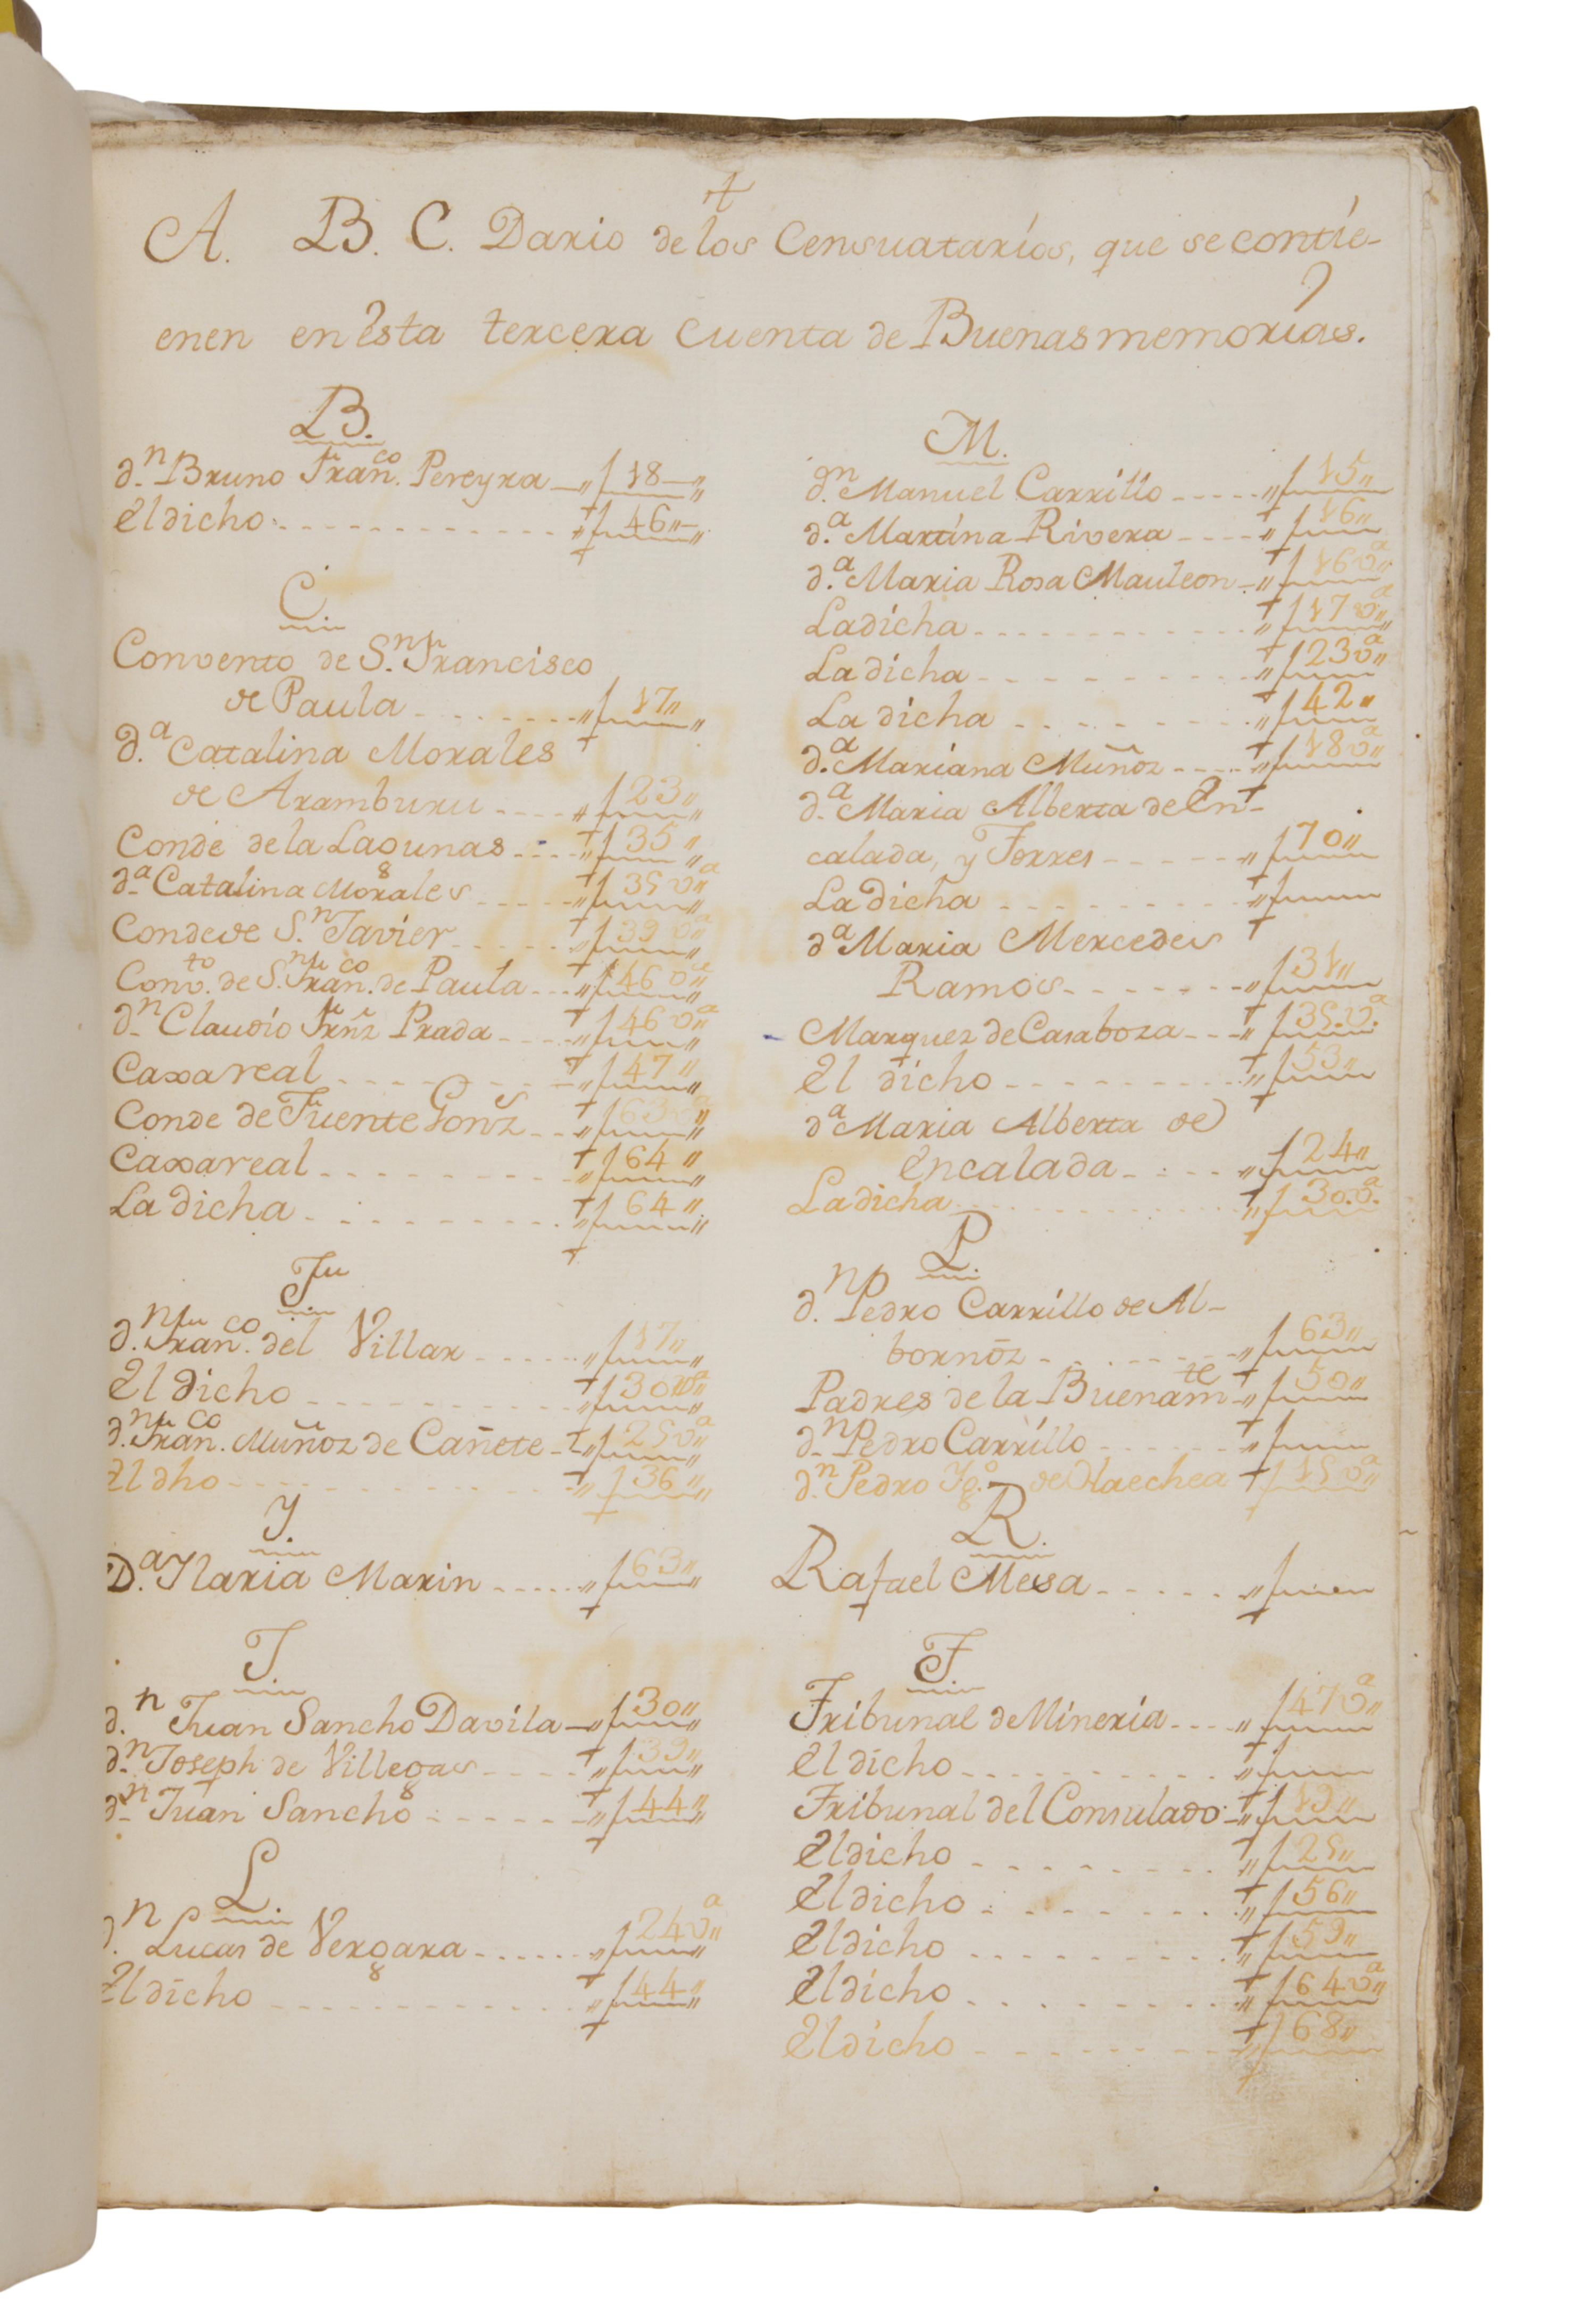 A. B. C. Dario de los Censuatarios, que se contie-
enen en esta tercera Cuenta de Buenas memorias.
B.
d.n Bruno Fran.co Pereyra — f 18
El dicho f 46
C.
Convento de S.n Francisco
de Paula f 17
d.a Catalina Morales
de Aramburu f 23
Conde de la Lagunas f 35
d.a Catalina Morales f 35 v.a
Conde de S.n Javier f 39 v.a
Conv.to de S.n Fran.co de Paula f 46 v.a
d.n Claudio Frñz Prada f 46 v.a
Caxa real f 47
Conde de Fuente Gonz.s f 63 v.a
Caxa real f 64
La dicha f 64
F
d.n Fran.co del Villar f 17
El dicho f 30 v.a
d.n Fran.co Muñoz de Cañete f 25 v.a
El dho f 36
Y.
D.a Ylaria Marin f 63
J.
d.n Juan Sancho Davila f 30
d.n Joseph de Villegas f 39
d.n Juan Sancho f 44
L.
d.n Lucas de Vergara f 24 v.a
El dicho f 44
M.
d.n Manuel Carrillo f 15
d.a Martina Rivera f 16
d.a Maria Rosa Mauleon f 16 v.a
La dicha f 17 v.a
La dicha f 23 v.a
La dicha f 42
d.a Mariana Muñoz f 18 v.a
d.a Maria Alberta de En-
calada, y Torres f 70
La dicha f
d.a Maria Mercedes
Ramos f 31
Marquez de Casaboza f 35 v.a
El dicho f 53
d.a Maria Alberta de
encalada f 24
La dicha f 30 v.a
P.
d.n Pedro Carrillo de Al-
bornōz f 63
Padres de la Buenam.te f 50
d.n Pedro Carrillo f
d.n Pedro Yg.o de Olaechea f 15 v.a
R.
Rafael Mesa f
T.
Tribunal de Mineria f 47 v.a
El dicho f
Tribunal del Consulado f 19
El dicho f 25
El dicho f 56
El dicho f 59
El dicho f 64 v.a
El dicho f 68